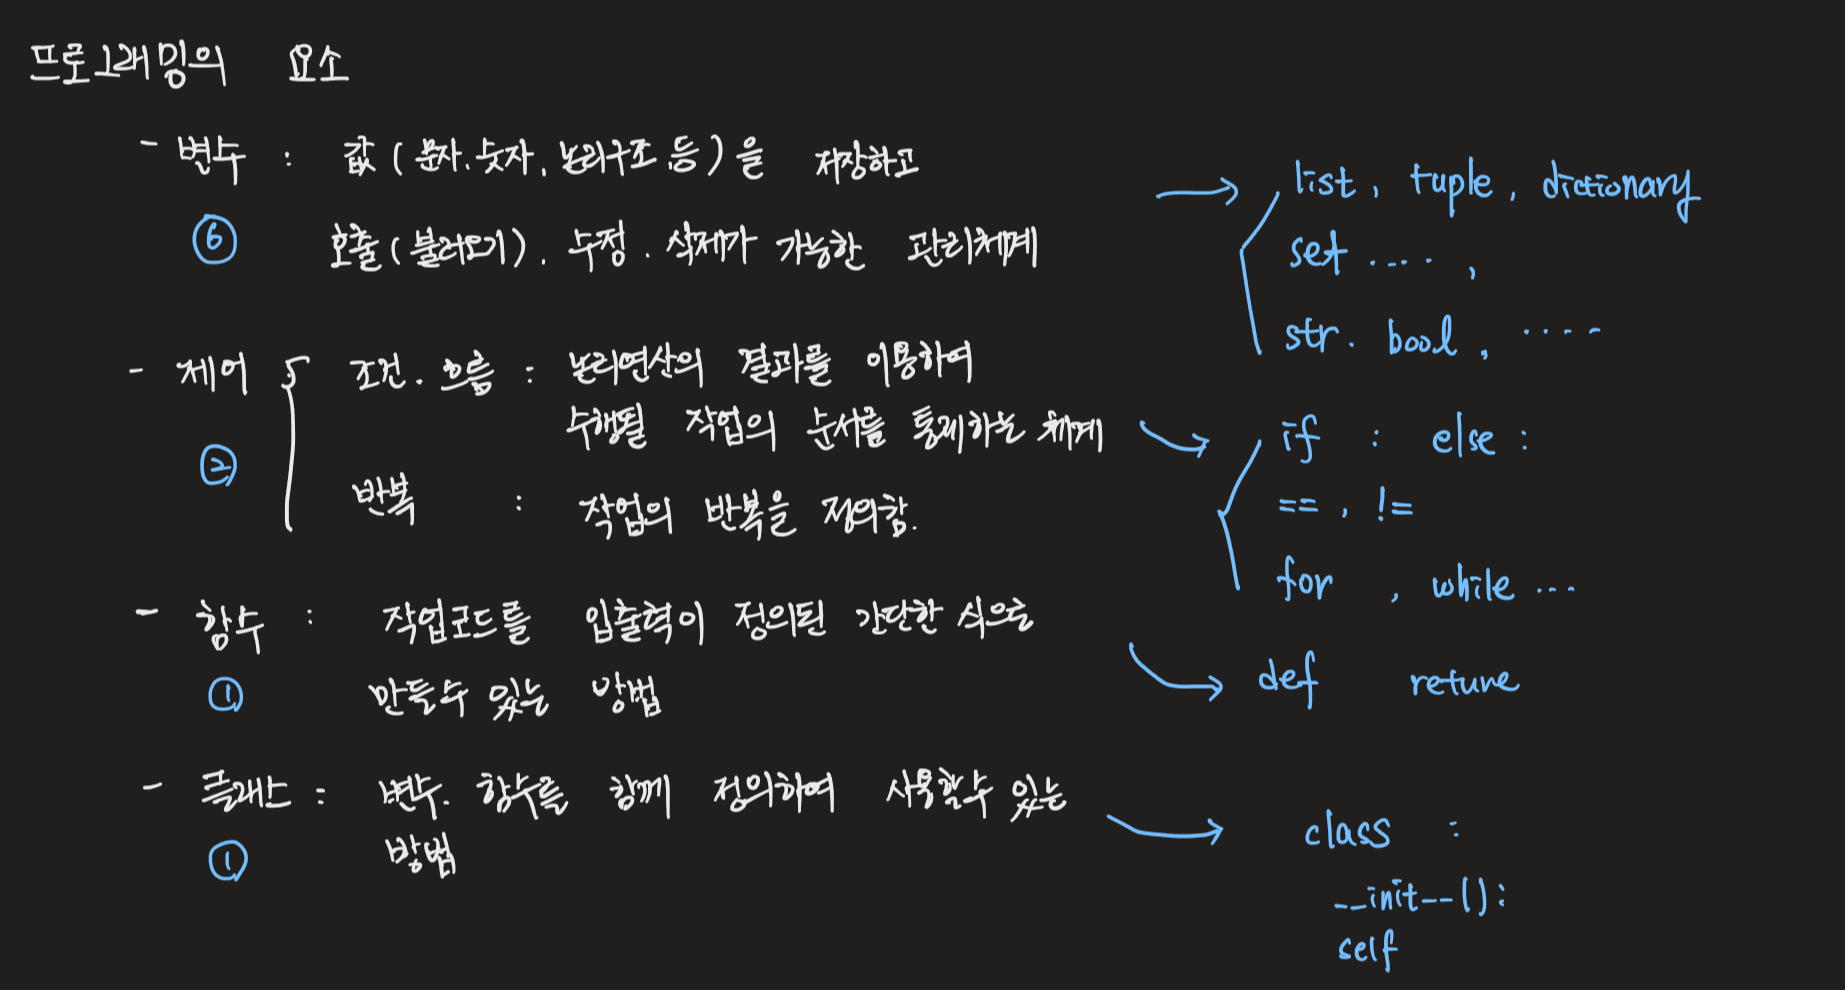 프로그래밍의 요소
- 변수 : 값(문자.숫자.논리구조 등)을 저장하고
⑥ 호출(불러오기). 수정. 삭제가 가능한 관리체계
→ list, tuple, dictionary
set ....,
str. bool, ....
- 제어 조건.흐름 : 논리연산의 결과를 이용하여
수행될 작업의 순서를 통제하는 체계
② 반복 : 작업의 반복을 정의함.
→ if : else :
== , !=
for , while ...
- 함수 : 작업코드를 입출력이 정의된 간단한 식으로
① 만들수 있는 방법
→ def return
- 클래스 : 변수. 함수를 함께 정의하여 사용할수 있는
① 방법
→ class :
__init__():
self